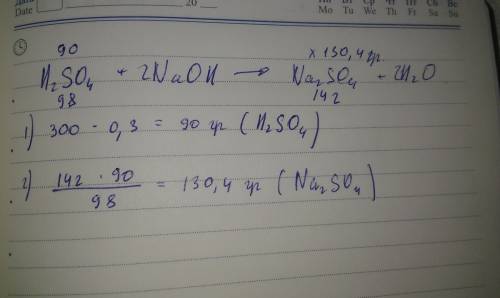 Дата
Date 20
Пн Вт Ср Чт Пт Сб Вс
Mo Tu We Th Fr Sa Su
90 x 130,4 гр.
H₂SO₄ + 2NaOH → Na₂SO₄ + 2H₂O
98 142
1) 300 · 0,3 = 90 гр (H₂SO₄)
2) 142 · 90 / 98 = 130,4 гр (Na₂SO₄)